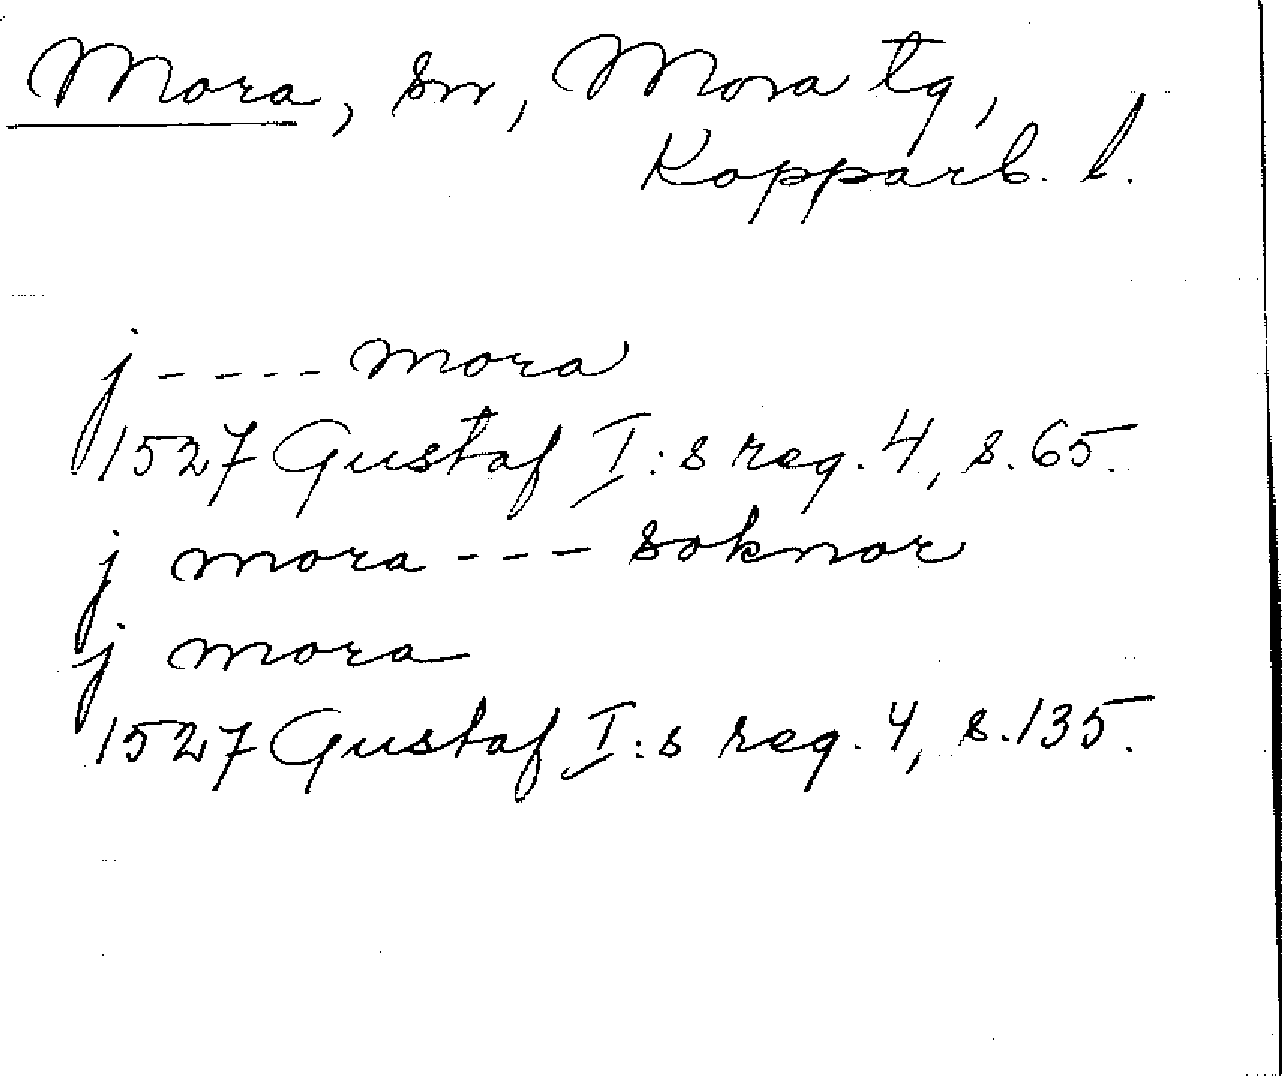 Mora, sn, Mora tg,
Kopparb. l.
j - - - - mora
1527 Gustaf I:s reg. 4, s. 65.
j mora - - - soknor
j mora
1527 Gustaf I:s reg. 4, s. 135.